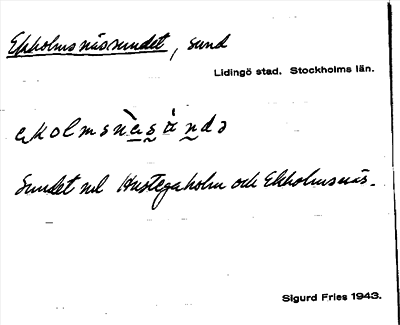 Ekholmsnässundet, sund
Lidingö stad. Stockholms län.
Sundet ml Hustegaholm och Ekholmsnäs.
Sigurd Fries 1943.